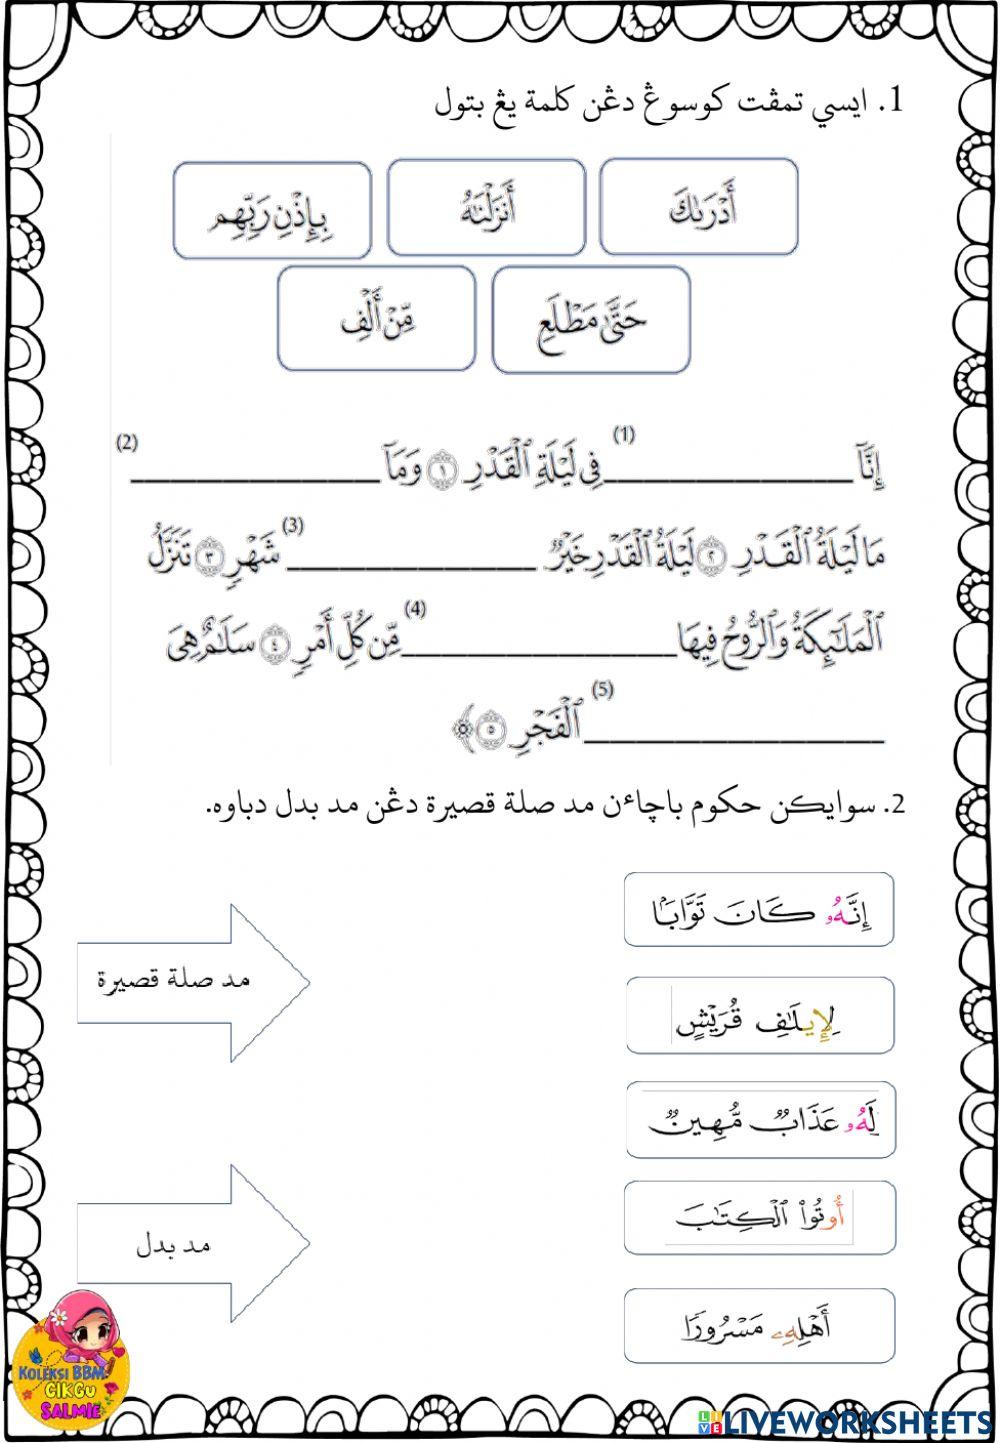 1. ايسي تمڤت كوسوڠ دڠن كلمة يڠ بتول
أَدْرَىٰكَ
أَنزَلْنَٰهُ
بِإِذْنِ رَبِّهِم
حَتَّىٰ مَطْلَعِ
مِّنْ أَلْفِ
إِنَّآ ____________ (1) فِى لَيْلَةِ ٱلْقَدْرِ ١ وَمَآ ____________ (2)
مَا لَيْلَةُ ٱلْقَدْرِ ٢ لَيْلَةُ ٱلْقَدْرِ خَيْرٌ ____________ (3) شَهْرٍ ٣ تَنَزَّلُ
ٱلْمَلَٰٓئِكَةُ وَٱلرُّوحُ فِيهَا ____________ (4) مِّن كُلِّ أَمْرٍ ٤ سَلَٰمٌ هِىَ
____________ (5) ٱلْفَجْرِ ٥
2. سوايكن حكوم باچاءن مد صلة قصيرة دڠن مد بدل دباوه.
إِنَّهُۥ كَانَ تَوَّابَۢا
لِإِيلَٰفِ قُرَيْشٍ
لَهُۥ عَذَابٌ مُّهِينٌ
أُوتُوا۟ ٱلْكِتَٰبَ
أَهْلِهِۦ مَسْرُورًا
مد صلة قصيرة
مد بدل
KOLEKSI BBM
CIKGU
SALMIE
LIVEWORKSHEETS